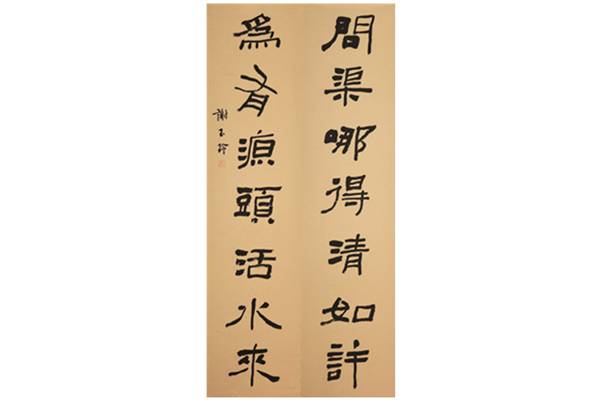 問渠哪得清如許
為有源頭活水來
謝玉玲